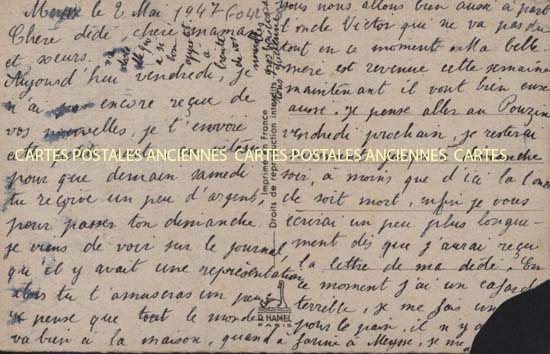 Meysse le 2 Mai 1947
Chère dédé, chère maman
et sœurs.
Aujourd'hui vendredi, je
n'ai pas encore reçue de
vos nouvelles, je t'envoie
pour que demain samedi
tu reçoive un peu d'argent,
pour passer ton dimanche
je viens de voir sur le journal
qu'il y avait une représentation
alors tu t'amuseras un peu
je pense que tout le monde
va bien à la maison, quand à
nous nous allons bien aussi à part
l'oncle Victor qui ne va pas du
tout en ce moment. Ma belle
mère est revenue cette semaine
maintenant il vont bien eux
aussi. Je pense aller au Pouzin
vendredi prochain, je resterai
dimanche
soir, à moins que d'ici là l'oncle
de soit mort, enfin je vous
écrirai un peu plus longue-
ment dès que j'aurai reçu
la lettre de ma dédé. En
ce moment j'ai un cafard
terrible, je me fais un
pour le pain, il n'y a
farine à Meysse, je me
CARTES POSTALES ANCIENNES CARTES POSTALES ANCIENNES CARTES
Imprimé en France
Droits de reproduction interdits
D. HAMEL
PARIS